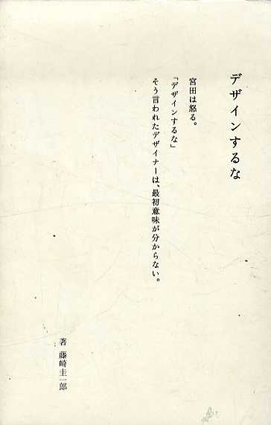 デザインするな
宮田は怒る。
「デザインするな」
そう言われたデザイナーは、最初意味が分からない。
著 藤崎圭一郎